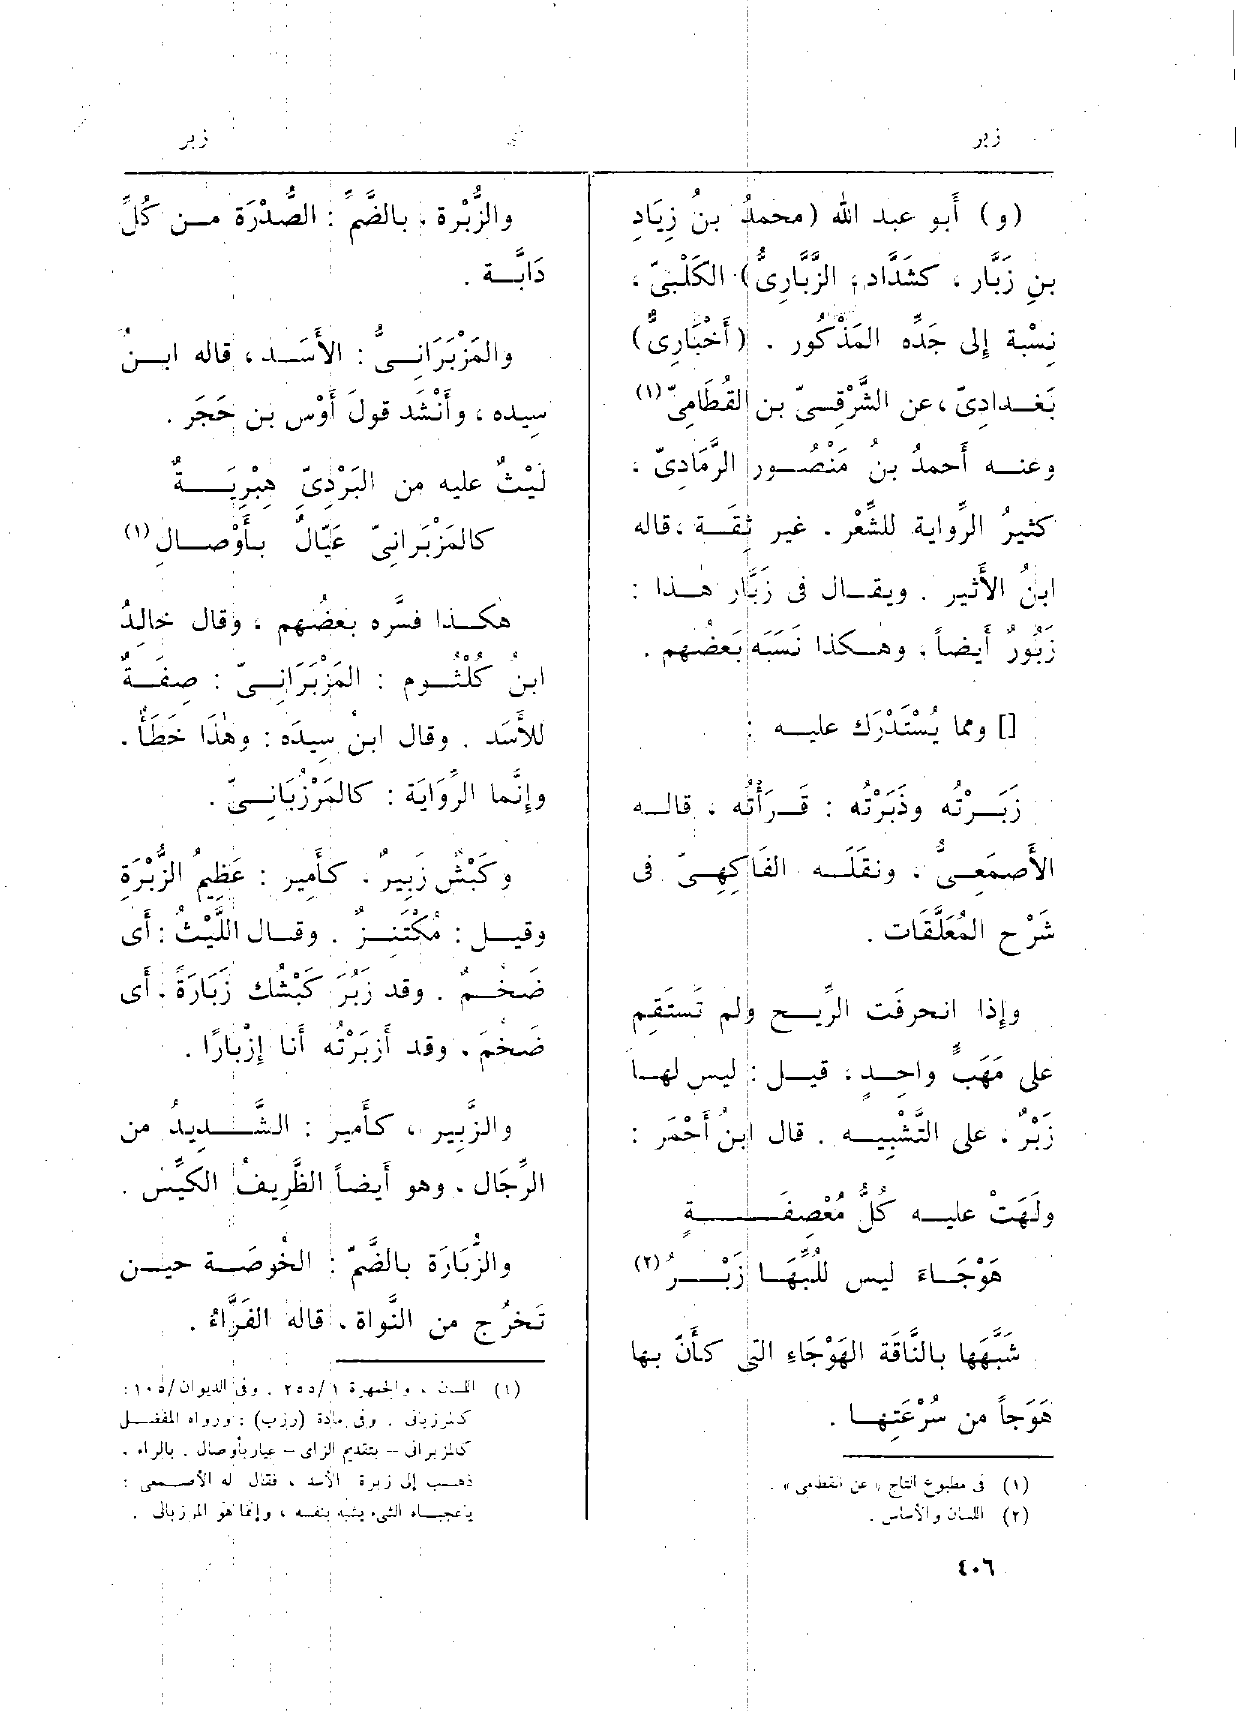 زبر
زبر
(و) أَبو عبد الله (محمدُ بنُ زِيَادِ
بنِ زَبَّار ، كشَدَّاد ، الزَّبَّارِىُّ) الكَلْبِىّ ،
نِسْبة إِلى جَدِّه المَذْكُور . (أَخْبَارِىٌّ)
بَغْدادِىّ ، عن الشَّرْقِىّ بن القُطَامِىّ (١)
وعنه أَحمدُ بنُ مَنْصُور الرَّمَادِىّ ،
كثيرُ الرِّواية للشِّعْر . غير ثِقَة ، قاله
ابنُ الأَثير . ويقال فى زَبَّار هذا :
زَبُّورٌ أَيضاً ، وهكذا نَسَبَه بَعضُهم .
[] ومما يُسْتَدْرَك عليه :
زَبَرْتُه وذَبَرْتُه : قَرَأْتُه ، قاله
الأَصمَعِىُّ ، ونقلَه الفَاكِهِىّ فى
شَرْح المُعَلَّقَات .
وإِذا انحرفَت الرِّيح ولم تَستَقِم
على مَهَبٍّ واحِدٍ ، قيل : ليس لها
زَبْرٌ ، على التَّشْبِيه . قال ابنُ أَحْمَر :
ولَهَتْ عليه كُلُّ مُعْصِفَةٍ
هَوْجَاءَ ليس للُبِّهَا زَبْرُ (٢)
شَبَّهَها بالنَّاقَة الهَوْجَاءِ التى كأَنّ بها
هَوَجاً من سُرْعَتِها .
(١) فى مطبوع التاج « عن القطامى » .
(٢) اللسان والأساس .
والزُّبْرة ، بالضَّمّ : الصُّدْرَة من كُلِّ
دَابَّة .
والمَزْبَرَانِىُّ : الأَسَد ، قاله ابنُ
سِيدِه ، وأَنْشَد قولَ أَوْس بن حَجَر .
لَيْثٌ عليه من البَرْدِىّ هِبْرِيَةٌ
كالمَزْبَرانِىّ عَيّالٌ بأَوْصالِ (١)
هكذا فسَّره بعضُهم ، وقال خالِدُ
ابنُ كُلْثُوم : المَزْبَرَانِىّ : صِفَةٌ
للأَسَد . وقال ابنُ سِيدَه : وهٰذا خَطَأٌ .
وإِنَّما الرِّوَايَة : كالمَرْزُبَانِىّ .
وكَبْشٌ زَبِيرٌ ، كأَمِير : عَظِيمُ الزُّبْرَةِ
وقيل : مُكْتَنِزٌ . وقال اللَّيْثُ : أَى
ضَخْمٌ . وقد زَبُرَ كَبْشُك زَبَارَةً ، أَى
ضَخُمَ ، وقد أَزبَرْتُه أَنا إِزْبارًا .
والزَّبِير ، كأَمير : الشَّديدُ من
الرِّجَال ، وهو أَيضاً الظَّرِيفُ الكَيِّس .
والزُّبَارَة بالضَّمّ : الخُوصَة حين
تَخرُج من النَّواة ، قاله الفَرَّاءُ .
(١) اللسان ، والجمهرة ١/٢٥٥ . وفى الديوان/١٠٥ :
كالمرزبانى . وفى مادة (رزب) : ورواه المفضل
كالمزبرانى – بتقديم الزاى – عيار بأوصال . بالراء .
ذهب إلى زبرة الأسد ، فقال له الأصمعى :
ياعجباه الشىء يشبّه بنفسه ، وإنما هو المرزبانى .
٤٠٦